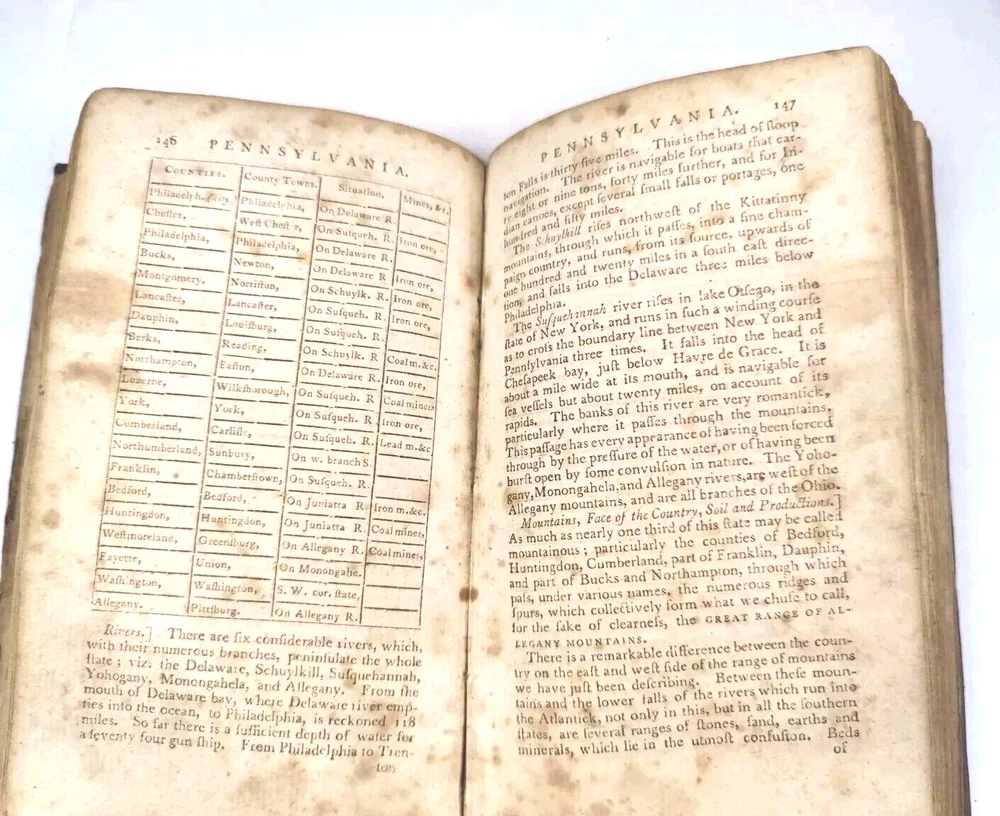 146 PENNSYLVANIA.
COUNTIES. County Towns. Situation. Mines, &c.
Philadelph. (city,) Philadelphia, On Delaware R.
Cheſter, Weſt Cheſt r, On Suſqueh. R. Iron ore,
Philadelphia, Philadelphia, On Delaware R.
Bucks, Newton, On Delaware R Iron ore,
Montgomery, Norriſton, On Schuylk. R. Iron ore,
Lancaſter, Lancaſter, On Suſqueh. R. Iron ore,
Dauphin, Louiſburg, On Suſqueh. R.
Berks, Reading, On Schuylk. R Coal m.&c.
Northampton, Eaſton, On Delaware R. Iron ore,
Luzerne, Wilkſborough, On Suſqueh. R. Coal mines
York, York, On Suſqueh. R. Iron ore,
Cumberland, Carliſle, On Suſqueh. R. Lead m.&c
Northumberland, Sunbury, On w. branch S.
Franklin, Chamberſtown, On Suſqueh. R.
Bedford, Bedford, On Juniatta R Iron m.&c.
Huntingdon, Huntingdon, On Juniatta R. Coal mines,
Weſtmoreland, Greenſburg, On Allegany R. Coal mines,
Fayette, Union, On Monongahe.
Waſhington, Waſhington, S. W. cor. ſtate,
Allegany. Pittſburg. On Allegany R.
Rivers.] There are ſix conſiderable rivers, which,
with their numerous branches, peninſulate the whole
ſtate; viz. the Delaware, Schuylkill, Suſquehannah,
Yohogany, Monongahela, and Allegany. From the
mouth of Delaware bay, where Delaware river emp-
ties into the ocean, to Philadelphia, is reckoned 118
miles. So far there is a ſufficient depth of water for
a ſeventy four gun ſhip. From Philadelphia to Tren-
ton
PENNSYLVANIA. 147
ton Falls is thirty five miles. This is the head of ſloop
navigation. The river is navigable for boats that car-
ry eight or nine tons, forty miles further, and for In-
dian canoes, except ſeveral ſmall falls or portages, one
hundred and fifty miles.
The Schuylkill riſes northweſt of the Kittatinny
mountains, through which it paſſes, into a fine cham-
paign country, and runs, from its ſource, upwards of
one hundred and twenty miles in a ſouth eaſt direc-
tion, and falls into the Delaware three miles below
Philadelphia.
The Suſquehannah river riſes in lake Otſego, in the
ſtate of New York, and runs in ſuch a winding courſe
as to croſs the boundary line between New York and
Pennſylvania three times. It falls into the head of
Cheſapeek bay, juſt below Havre de Grace. It is
about a mile wide at its mouth, and is navigable for
ſea veſſels but about twenty miles, on account of its
rapids. The banks of this river are very romantick,
particularly where it paſſes through the mountains.
This paſſage has every appearance of having been forced
through by the preſſure of the water, or of having been
burſt open by ſome convulſion in nature. The Yoho-
gany, Monongahela, and Allegany rivers, are weſt of the
Allegany mountains, and are all branches of the Ohio.
Mountains, Face of the Country, Soil and Productions.]
As much as nearly one third of this ſtate may be called
mountainous; particularly the counties of Bedford,
Huntingdon, Cumberland, part of Franklin, Dauphin,
and part of Bucks and Northampton, through which
paſs, under various names, the numerous ridges and
ſpurs, which collectively form what we chuſe to call,
for the ſake of clearneſs, the GREAT RANGE OF AL-
LEGANY MOUNTAINS.
There is a remarkable difference between the coun-
try on the eaſt and weſt ſide of the range of mountains
we have juſt been deſcribing. Between theſe moun-
tains and the lower falls of the rivers which run into
the Atlantick, not only in this, but in all the ſouthern
ſtates, are ſeveral ranges of ſtones, ſand, earths and
minerals, which lie in the utmoſt confuſion. Beds
of